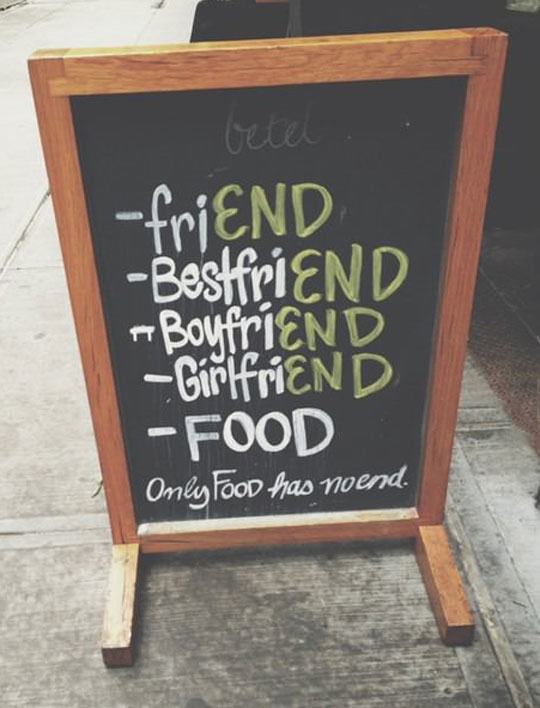 betel
-friEND
-BestfriEND
-BoyfriEND
-GirlfriEND
-FOOD
Only FOOD has no end.